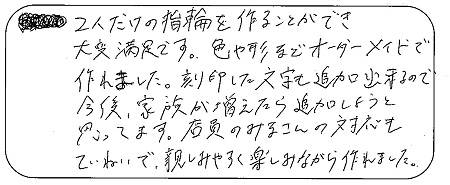 2人だけの指輪を作ることができ
大変満足です。色や形までオーダーメイドで
作れました。刻印した文字も追加出来るので
今後、家族が増えたら追加しようと
思ってます。店員のみなさんの対応も
ていねいで、親しみやすく楽しみながら作れました。